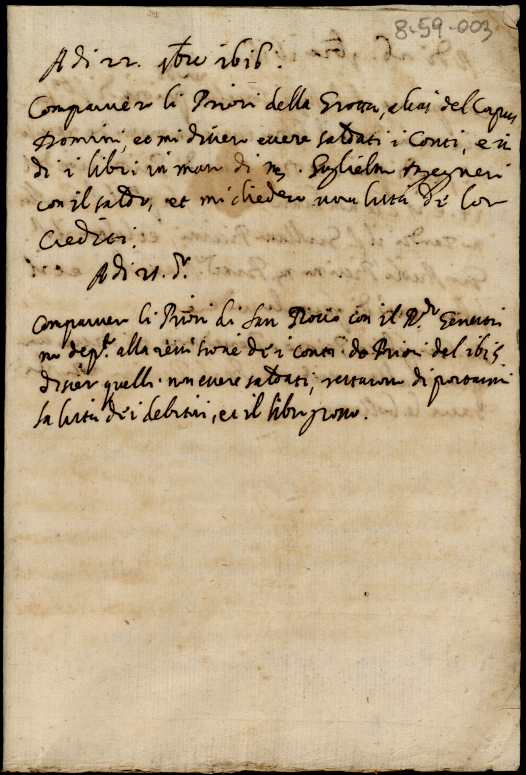 8-59-003
A di 22. 9bre 1616.
Comparver li Priori della Grotta, alias del Corpus
Domini, et mi disser essere saldati i Conti, e
di i libri in man di Guglielm Ingegneri
con il saldo, et mi dieder una lista de lor
Crediti.
A di
Comparver li Priori di San Rocco con il
alla revisione de i conti de Priori del 1615
disser quelli non essere saldati, restaron di portarmi
la lista de i debitori, et il libro grosso.